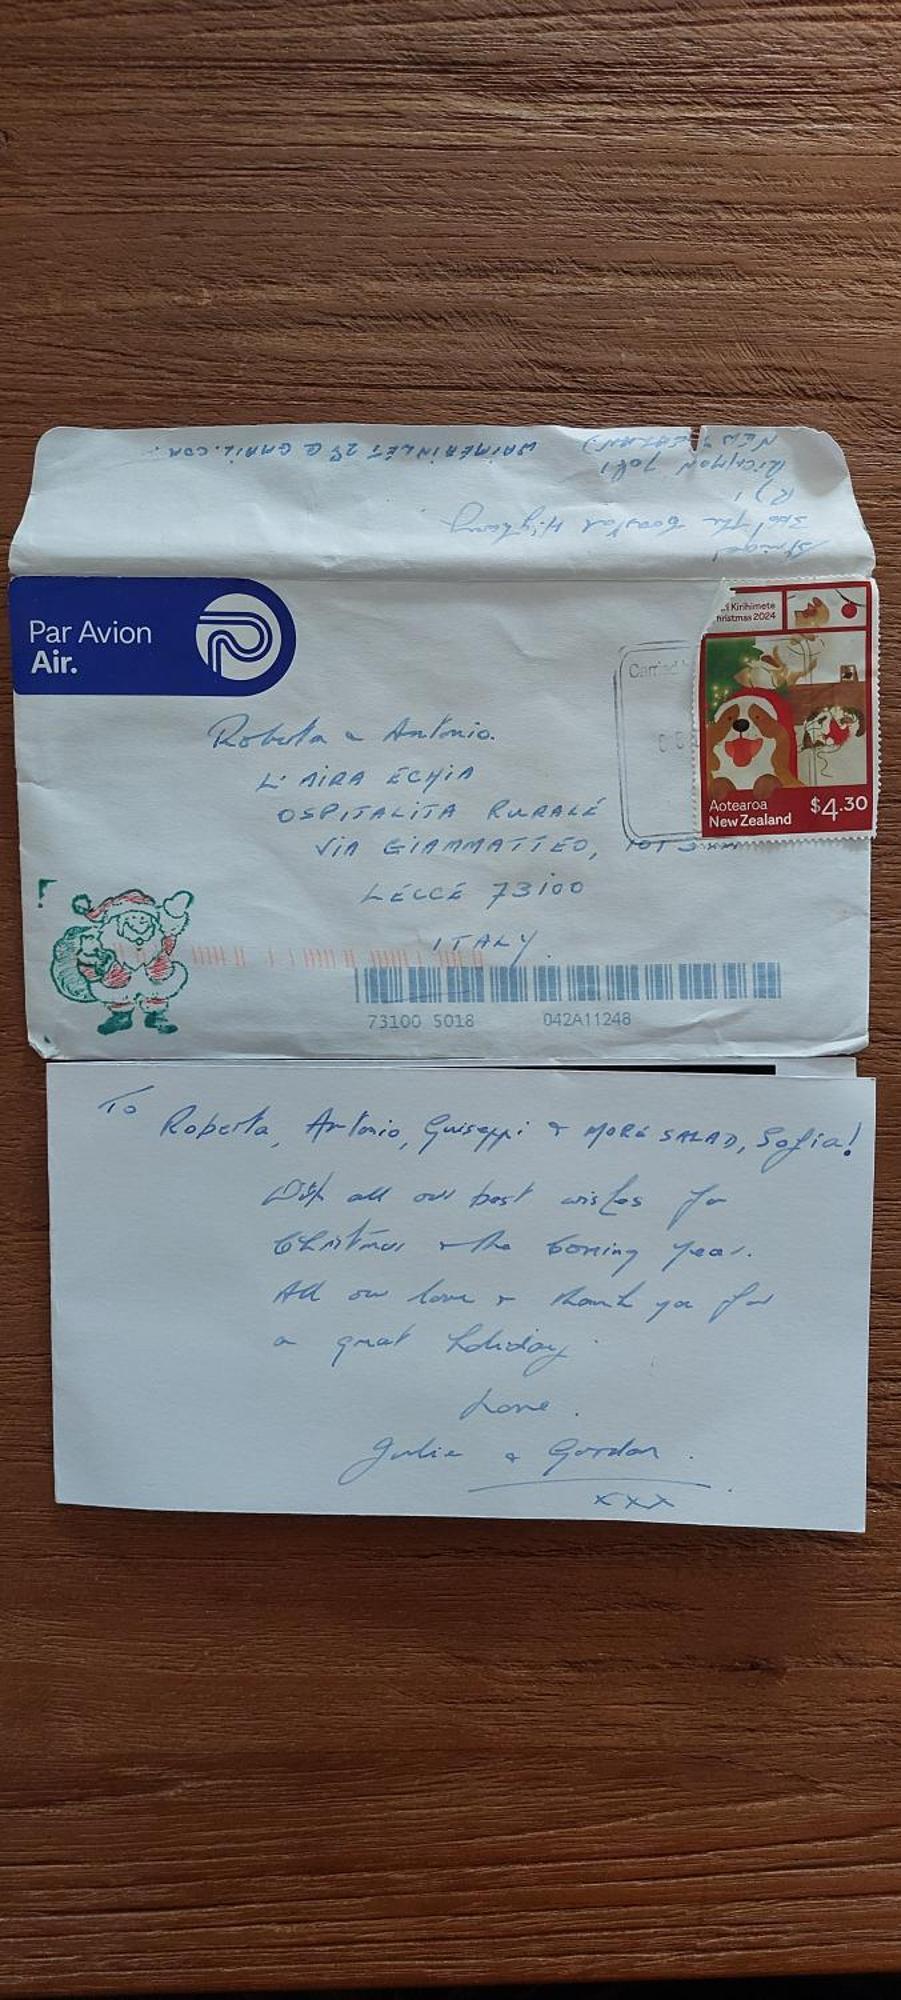 WAIMERINLET 28 @ GMAIL.COM.
NEW ZEALAND
RICHMOND 7081
RD1
The Coastal Highway
Par Avion
Air.
Kirihimete
hristmas 2024
Carried
Aotearoa
New Zealand
$4.30
Roberta & Antonio.
L'AIRA ECHIA
OSPITALITA RURALE
VIA GIAMMATTEO,
LECCE 73100
ITALY.
73100 5018 042A11248
To
Roberta, Antonio, Guiseppi & MORE SALAD, Sofia!
With all our best wishes for
Christmas & the Coming Year.
All our love & thank you for
a great holiday.
Love.
Julie & Gordon.
xxx